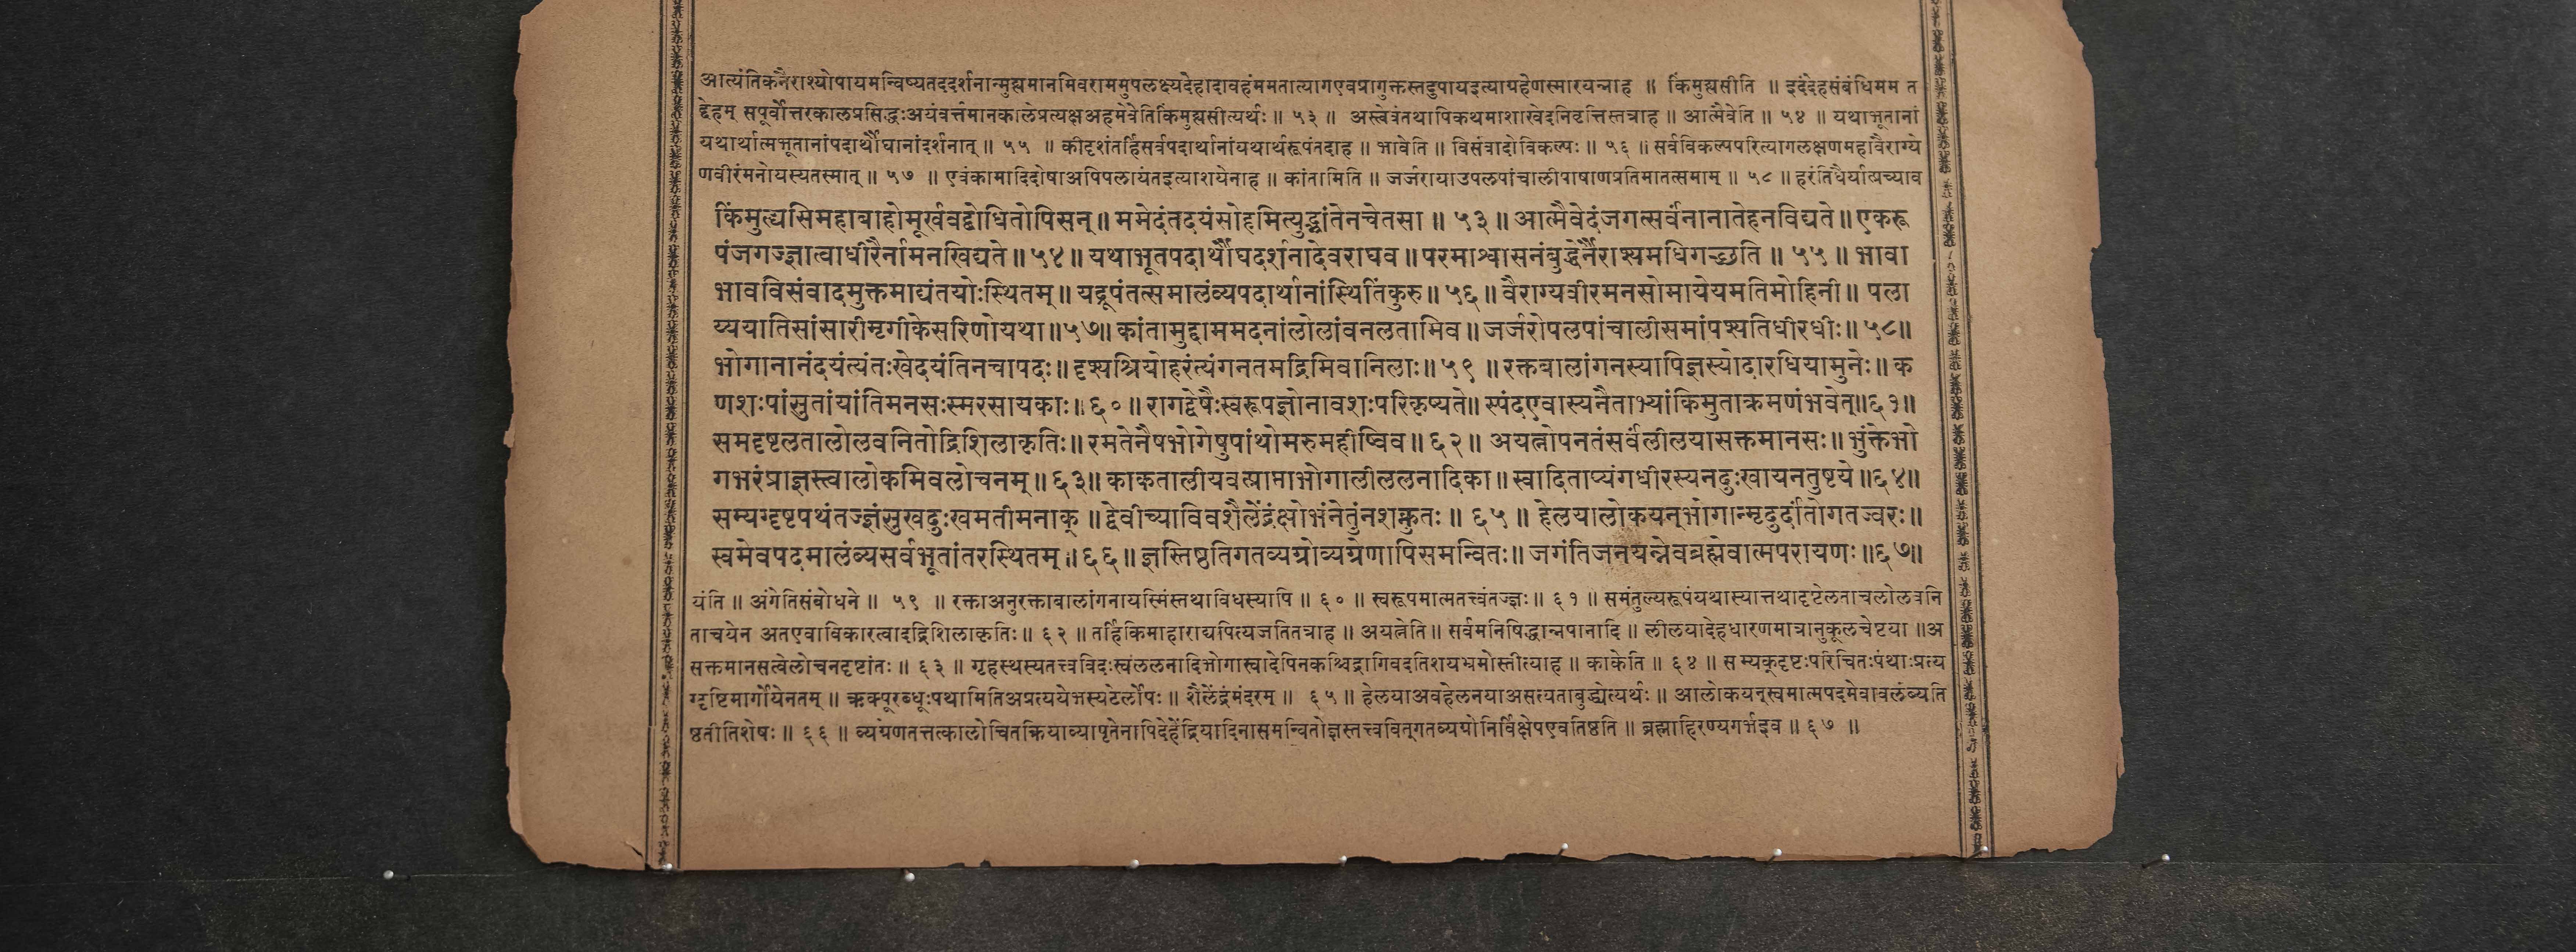 आत्यंतिकनैराश्योपायमन्विष्यतददर्शनान्मुह्यमानमिवराममुपलक्ष्यदेहादावहंममतात्यागएवप्रागुक्तस्तदुपायइत्याग्रहेणस्मारयन्नाह ॥ किंमुह्यसीति ॥ इदंदेहसंबंधिमम त
द्देहम् सपूर्वोत्तरकालप्रसिद्धःअयंवर्त्तमानकालेप्रत्यक्षअहमेवेतिकिंमुह्यसीत्यर्थः ॥ ५३ ॥ अस्त्वेवंतथापिकथमाशाखेदनिवृत्तिस्तत्राह ॥ आत्मैवेति ॥ ५४ ॥ यथाभूतानां
यथार्थात्मभूतानांपदार्थौघानांदर्शनात् ॥ ५५ ॥ कीदृशंतर्हिसर्वपदार्थानांयथार्थरूपंतदाह ॥ भावेति ॥ विसंवादोविकल्पः ॥ ५६ ॥ सर्वविकल्पपरित्यागलक्षणमहावैराग्ये
णवीरंमनोयस्यतस्मात् ॥ ५७ ॥ एवंकामादिदोषाअपिपलायंतइत्याशयेनाह ॥ कांतामिति ॥ जर्जरायाउपलपांचालीपाषाणप्रतिमातत्समाम् ॥ ५८ ॥ हरंतिधैर्यात्प्रच्याव
किंमुह्यसिमहाबाहोमूर्खवद्बोधितोपिसन् ॥ ममेदंतदयंसोहमित्युद्भ्रांतेनचेतसा ॥ ५३ ॥ आत्मैवेदंजगत्सर्वंनानातेहनविद्यते ॥ एकरू
पंजगज्ज्ञात्वाधीरैर्नामनखिद्यते ॥ ५४ ॥ यथाभूतपदार्थौघदर्शनादेवराघव ॥ परमाश्वासनंबुद्धेर्नैराश्यमधिगच्छति ॥ ५५ ॥ भावा
भावविसंवादमुक्तमाद्यंतयोःस्थितम् ॥ यद्रूपंतत्समालंब्यपदार्थानांस्थितिंकुरु ॥ ५६ ॥ वैराग्यवीरमनसोमायेयमतिमोहिनी ॥ पला
य्ययातिसांसारीमृगीकेसरिणोयथा ॥ ५७ ॥ कांतामुद्दाममदनांलोलांवनलतामिव ॥ जर्जरोपलपांचालीसमांपश्यतिधीरधीः ॥ ५८ ॥
भोगानानंदयंत्यंतःखेदयंतिनचापदः ॥ दृश्यश्रियोहरंत्यंगनतमद्रिमिवानिलाः ॥ ५९ ॥ रक्तबालांगनस्यापिज्ञस्योदारधियामुनेः ॥ क
णशःपांसुतांयांतिमनसःस्मरसायकाः ॥ ६० ॥ रागद्वेषैःस्वरूपज्ञोनावशःपरिकृष्यते ॥ स्पंदएवास्यनैताभ्यांकिमुताक्रमणंभवेत् ॥ ६१ ॥
समदृष्टलतालोलवनितोद्रिशिलाकृतिः ॥ रमतेनैषभोगेषुपांथोमरुमहीष्विव ॥ ६२ ॥ अयत्नोपनतंसर्वंलीलयासक्तमानसः ॥ भुंक्तेभो
गभरंप्राज्ञस्त्वालोकमिवलोचनम् ॥ ६३ ॥ काकतालीयवत्प्राप्ताभोगालीललनादिका ॥ स्वादिताप्यंगधीरस्यनदुःखायनतुष्टये ॥ ६४ ॥
सम्यग्दृष्टपथंतज्ज्ञंसुखदुःखमतीमनाक् ॥ द्वेवीच्याविवशैलेंद्रंक्षोभंनेतुंनशक्नुतः ॥ ६५ ॥ हेलयालोकयन्भोगान्मृदुर्दांतोगतज्वरः ॥
स्वमेवपदमालंब्यसर्वभूतांतरस्थितम् ॥ ६६ ॥ ज्ञस्तिष्ठतिगतव्यग्रोव्यग्रेणापिसमन्वितः ॥ जगंतिजनयन्नेवब्रह्मेवात्मपरायणः ॥ ६७ ॥
यंति ॥ अंगेतिसंबोधने ॥ ५९ ॥ रक्ताअनुरक्ताबालांगनायस्मिंस्तथाविधस्यापि ॥ ६० ॥ स्वरूपमात्मतत्त्वंतज्ज्ञः ॥ ६१ ॥ समंतुल्यरूपंयथास्यात्तथादृष्टेलताचलोलवनि
ताचयेन अतएवाविकारत्वादद्रिशिलाकृतिः ॥ ६२ ॥ तर्हिकिमाहाराद्यपित्यजतितत्राह ॥ अयत्नेति ॥ सर्वमनिषिद्धान्नपानादि ॥ लीलयादेहधारणमात्रानुकूलचेष्टया ॥ अ
सक्तमानसत्वेलोचनदृष्टांतः ॥ ६३ ॥ गृहस्थस्यतत्त्वविदःस्वललनादिभोगास्वादेपिनकश्चिद्रागिवदतिशयभ्रमोस्तीत्याह ॥ काकेति ॥ ६४ ॥ सम्यक्दृष्टःपरिचितःपंथाःप्रत्य
ग्दृष्टिमार्गोयेनतम् ॥ ऋक्पूरब्धूःपथामितिअप्रत्ययेभस्यटेर्लोपः ॥ शैलेंद्रंमंदरम् ॥ ६५ ॥ हेलयाअवहेलनयाअसत्यताबुद्ध्येत्यर्थः ॥ आलोकयन्स्वमात्मपदमेवावलंब्यति
ष्ठतीतिशेषः ॥ ६६ ॥ व्यग्रेणतत्तत्कालोचितक्रियाव्यापृतेनापिदेहेंद्रियादिनासमन्वितोज्ञस्तत्त्ववित्गतव्यग्रोनिर्विक्षेपएवतिष्ठति ॥ ब्रह्माहिरण्यगर्भइव ॥ ६७ ॥